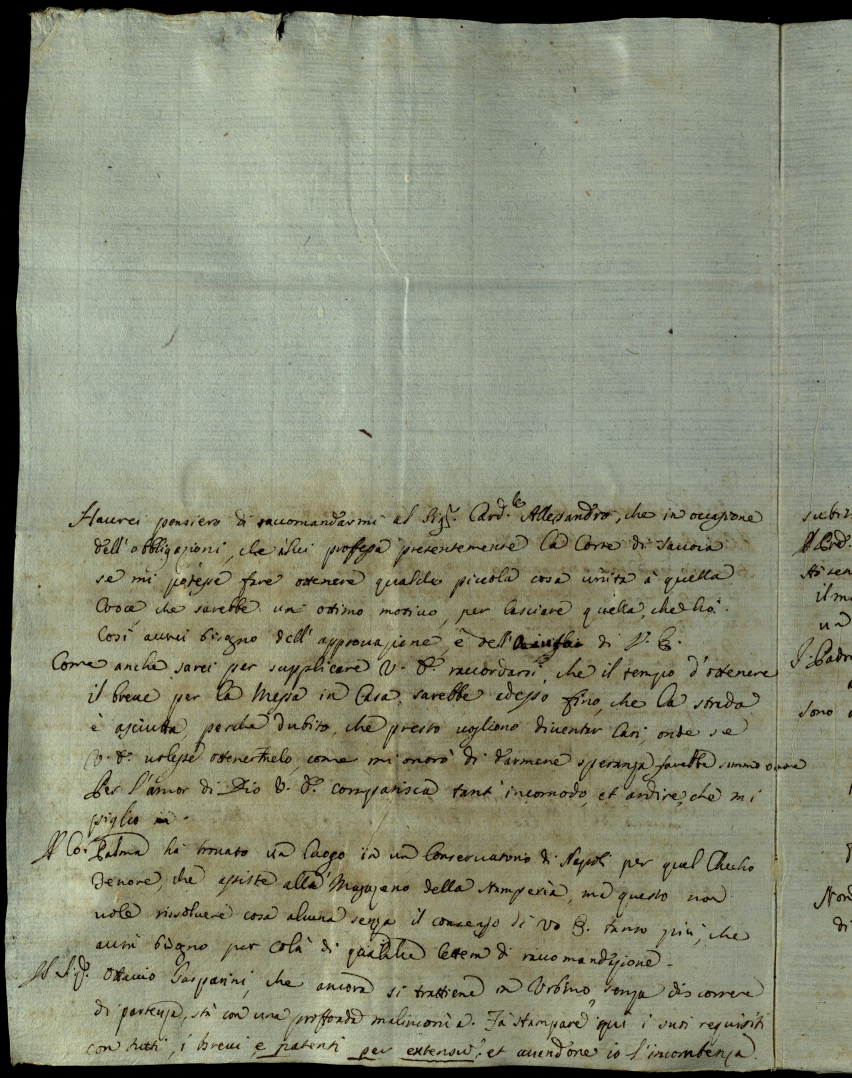 Haurei pensiero di raccomandarmi al Sig.r Card.le Allessandro, che in occasione
dell'obbligazioni, che à lui professa presentemente la Corte di Savoia
se mi potesse fare ottenere qualche piccola cosa unita à quella
Croce, che sarebbe un ottimo motivo, per lasciare quella, che hò.
Così aurei bisogno dell'approvazione, e dell' di V. E.
Come anche sarei per supplicare V. E. raccordarsi, che il tempo d'ottenere
il breve per la Messa in Casa, sarebbe adesso fino, che la strada
è asciutta, perche dubito, che presto vogliono diventar Cari, onde se
V. E. volesse ottenerlelo, come mi onorò di darmene speranza sarebbe
Per l'amor di Dio V. E. compatisca tant'incomodo, et ardire, che mi
piglio
Il Co: Palma hà trovato un luogo in un Conservatorio di Napoli per qual Checho
Tenore, che assiste alla Magazeno della stamperia, ma questo non
vole rissolvere cosa alcuna senza il consenso di V. E. tanto più, che
aurà bisogno per colà di qualche lettera di raccomandazione.
Il Sig.r Ottavio Gasparini, che ancora si trattiene in Urbino senza discorrere
di partenza, stà con una proffonda malinconia. Fà stampare qui i suoi requisiti
con tutti, i brevi e patenti per extensum, et avendone io l'incombenza
subit
Il Card.
il m
un
sono
Non
di